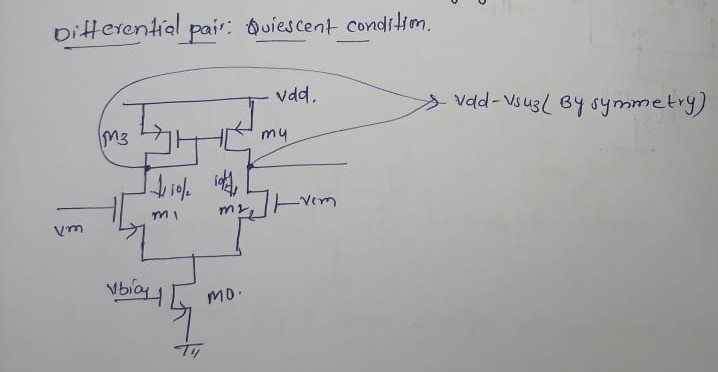 Differential pair: Quiescent condition.
Vdd.
Vdd-Vsg3( By symmetry)
M3
M4
io/2
io/2
M1
M2
Vcm
Vm
Vbias
M0.